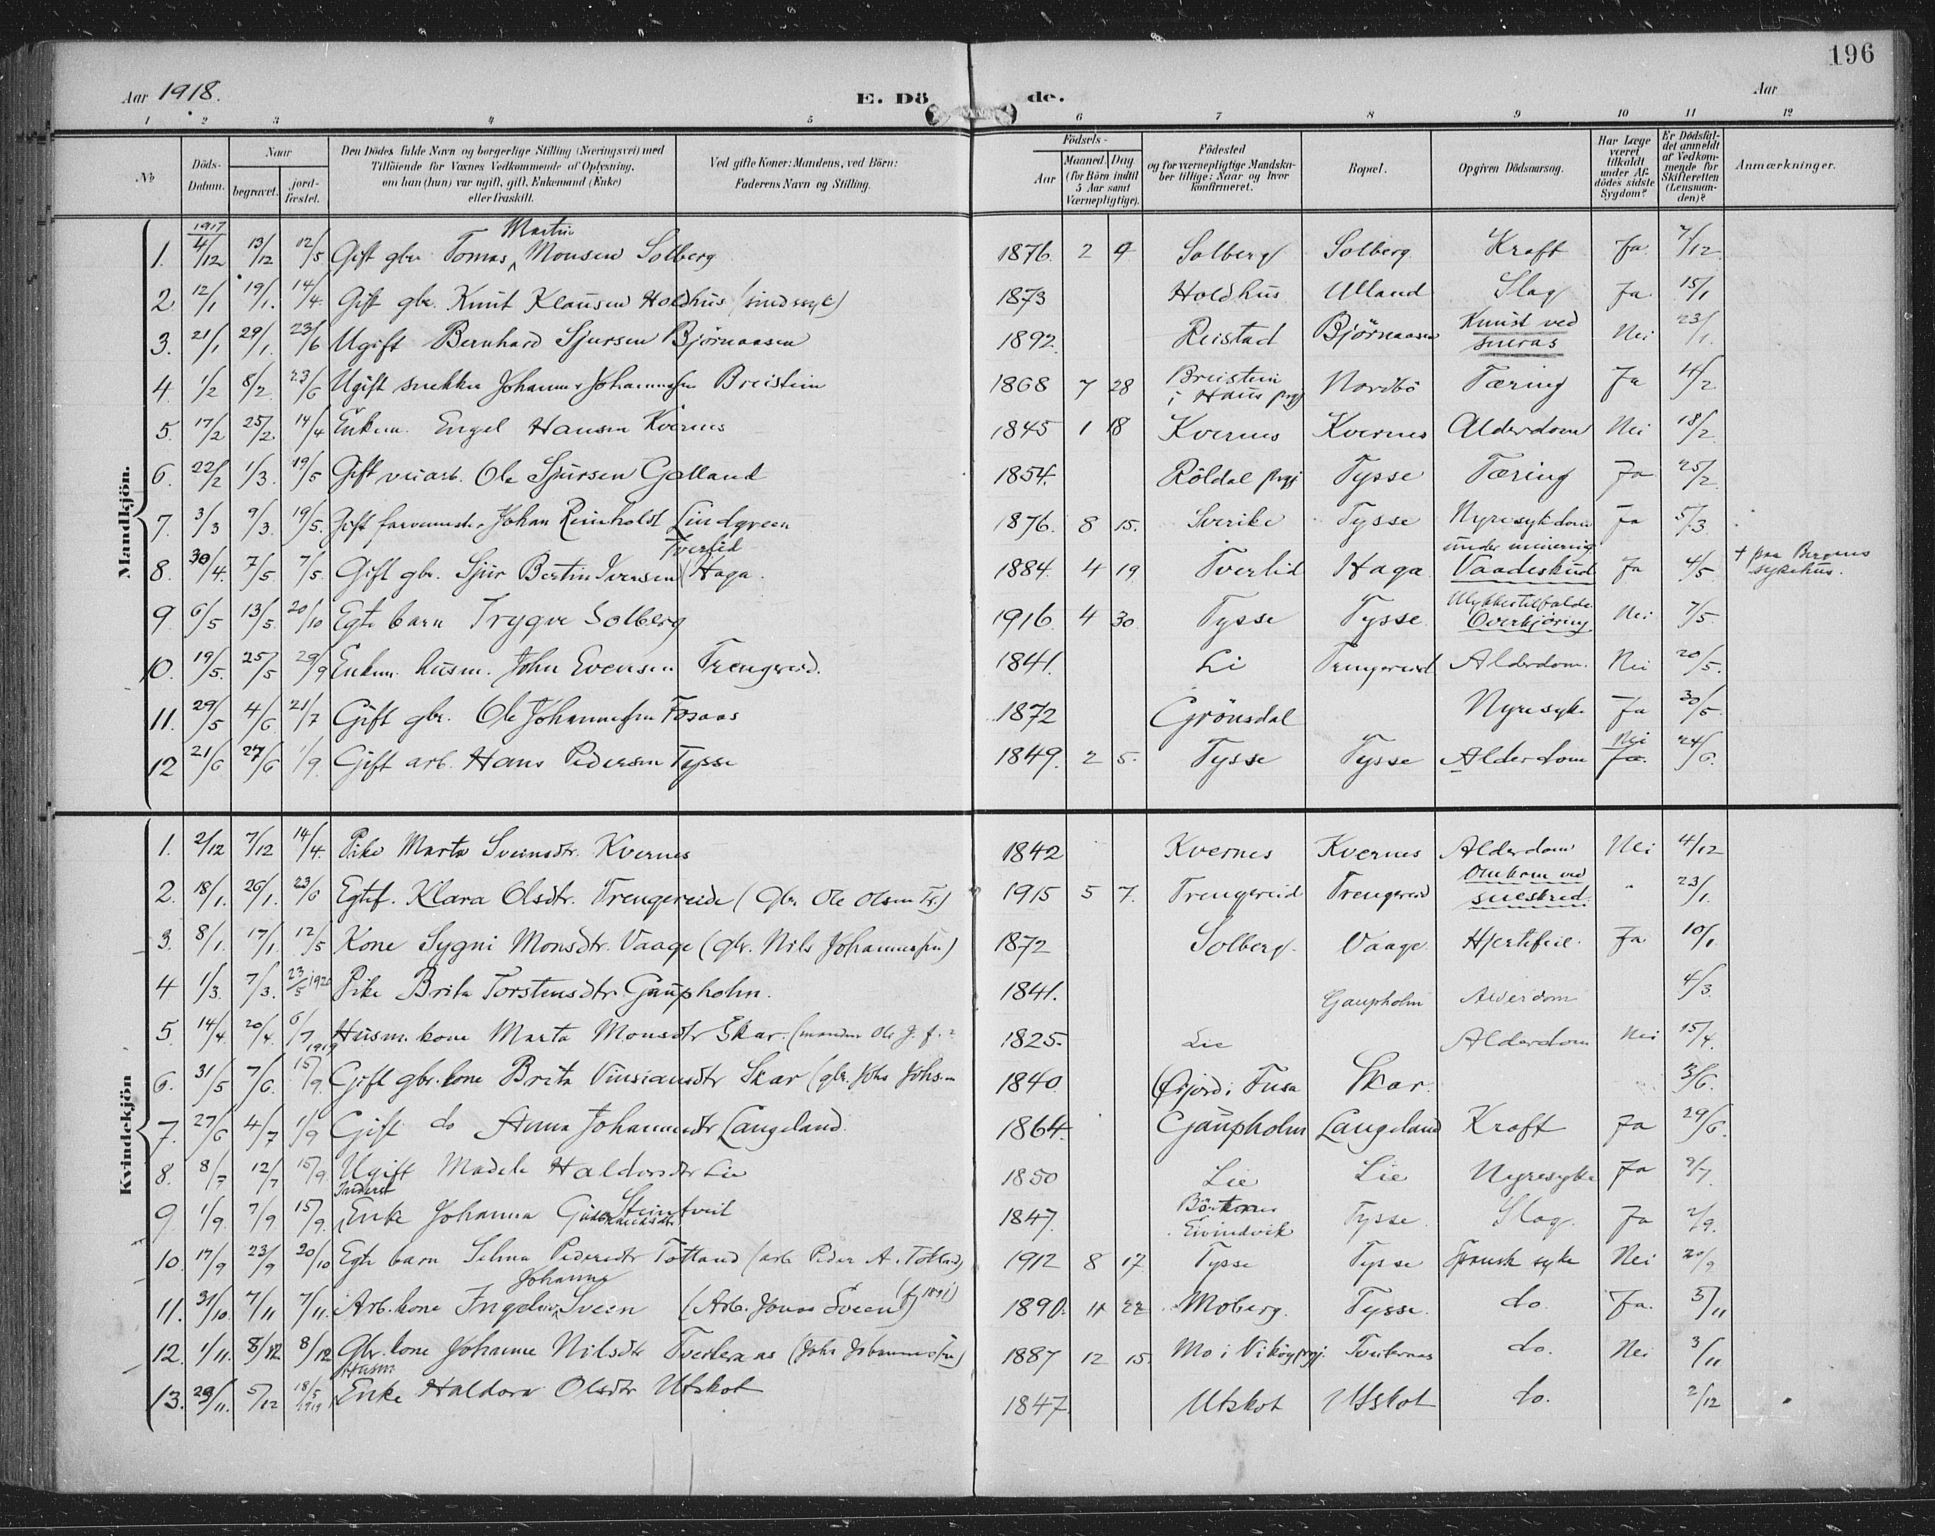 196
Aar 1918.
E. Döde.
Aar
1 2 3 4 5 6 7 8 9 10 11 12
No
Döds-Datum.
Naar
begravet.
jord-fæstet.
Den Dödes fulde Navn og borgerlige Stilling (Næringsvei) med
Tilföiende for Voxnes Vedkommende af Oplysning,
om han (hun) var ugift, gift, Enkemand (Enke)
eller fraskilt.
Ved gifte Koner: Mandens, ved Börn:
Faderens Navn og Stilling.
Födsels-
Aar
Maaned Dag
(for Börn indtil
5 Aar samt
Værnepligtige).
Födested
og for værnepligtige Mandska-
ber tillige: Naar og hvor
konfirmeret.
Bopæl.
Opgiven Dödsaarsag.
Har Læge
været
tilkaldt
under Af-
dödes sidste
Sygdom?
Er Dödsfal-
det anmeldt
af Vedkom-
mende for
Skifteretten
(Lensman-
den)?
Anmærkninger.
Mandkjön.
1. 1917 4/12 13/12 12/5 Gift gbr. Tomas Martin Monsen Solberg 1876. 2 9 Solberg Solberg Kræft Ja. 7/12
2. 12/1 19/1. 14/4. Gift gbr. Knut Klausen Holdhus (sindssyk) 1873 Holdhus Ulland Slag Ja 15/1
3. 21/1 29/1. 23/6 Ugift Bernhard Sjursen Bjørnaasen 1892. Reistad Bjørnaasen Knust ved sneras Nei 23/1.
4. 1/2 8/2. 23/6 Ugift snekker Johannes Johannessen Breistein 1868 7 28 Breistein i Haus prgj Nordbö Tæring Ja 4/2
5. 17/2 25/2. 14/4 Enkem. Engel Hansen Kvernes 1845 1 18 Kvernes Kvernes Alderdom Nei 18/2
6. 22/2 1/3. 19/5 Gift veiarb. Ole Sjursen Galland 1854. Röldal prgj Tysse Tæring Ja 25/2.
7. 3/3 9/3. 19/5. Gift farvermester Johan Reinholdt Lindgreen 1876. 8 15. Sverike Tysse Nyresykdom Ja 5/3.
8. 30/4. 7/5. 7/5. Gift gbr. Sjur Bertin Iversen Tverlid Haga. 1884. 4 19 Tverlid Haga under minering Vaadeskud Ja 4/5 + paa Bergens sykehus.
9. 6/5 13/5. 20/10 Egte barn Trygve Solberg 1916. 4 30. Tysse Tysse Ulykkestilfælde Overkjøring Nei 7/5.
10. 19/5. 25/5 29/9 Enkem. husm. John Evensen Trengereid. 1841. Li Trengereid Alderdom. Nei 20/5.
11. 29/5 4/6 21/7 Gift gbr. Ole Johannessen Fosaas 1872 Grönsdal Nyresyke Ja 30/5.
12 21/6 27/6 1/9. Gift arb. Hans Pedersen Tysse 1849. 2 5. Tysse Tysse Alderdom Nei Ja. 24/6.
Kvindekjön
1. 2/12 7/12 14/4. Pike Marta Sveinsdtr. Kvernes 1842 Kvernes Kvernes Alderdom Nei 4/12
2. 18/1. 26/1. 23/6 Egtef. Klara Olsdtr. Trengereide (Gbr. Ole Olsen Tr.) 1915 5 7. Trengereid Trengereid Omkom ved sneskred. " 23/1.
3. 8/1. 17/1. 12/5 Kone Sygni Monsdtr. Vaage (gbr. Nils Johannessen) 1872 Solberg. Vaage Hjertefeil. Ja 10/1
4 1/3. 7/3. 23/5 1920 Pike Brita Torstensdtr. Gaupholm. 1841. Gaupholm Alderdom 4/3.
5. 14/4. 20/4. 6/7 1919 Husm. kone Marta Monsdtr Skar. (manden Ole J. f. ? 1825. Lie Alderdom Nei 15/4.
6. 31/5 7/6. 15/9. Gift gbr. kone Brita Vinsiansdtr Skar (gbr. Johs Johs.n 1840. Øijord i Fusa Skar. 3/6.
7. 27/6 4/7 1/9 Gift do Anna Johannesdtr Langeland. 1864. Gaupholm Langeland Kræft Ja 29/6.
8. 8/7 12/7 15/9. Ugift Madele Haldorsdtr Lie 1850 Lie Lie Nyresyke Ja 9/7.
9. 1/9. 7/9. 15/9. Inderst Enke Johanna Steintveit 1847. Eivindvik Tysse. Slag. Ja 2/9.
10. 17/9 23/9 20/10 Egte barn Selma Pedersdtr Totland (arb. Peder A. Totland) 1912 8 17 Tysse Tysse Spansk syke Nei 20/9
11. 31/10. 7/11 7/11. Arb. kone Ingeborg Johanna Sveen (Arb. Jonas Sveen) (f. 1891) 1890. 11 22 Moberg. Tysse. do. Ja. 5/11
12. 1/11. 8/12 8/12 Gbr. kone Johanne Nilsdtr Tveiteraas (Johs Johannessen) 1887 12 15. Mo i Vikör prgj. Tveiteraas do. Nei 3/11
13. 29/11. 5/12 18/5 1919 Husm. Enke Haldora Olsdtr Utskot 1847. Utskot Utskot do. 2/12